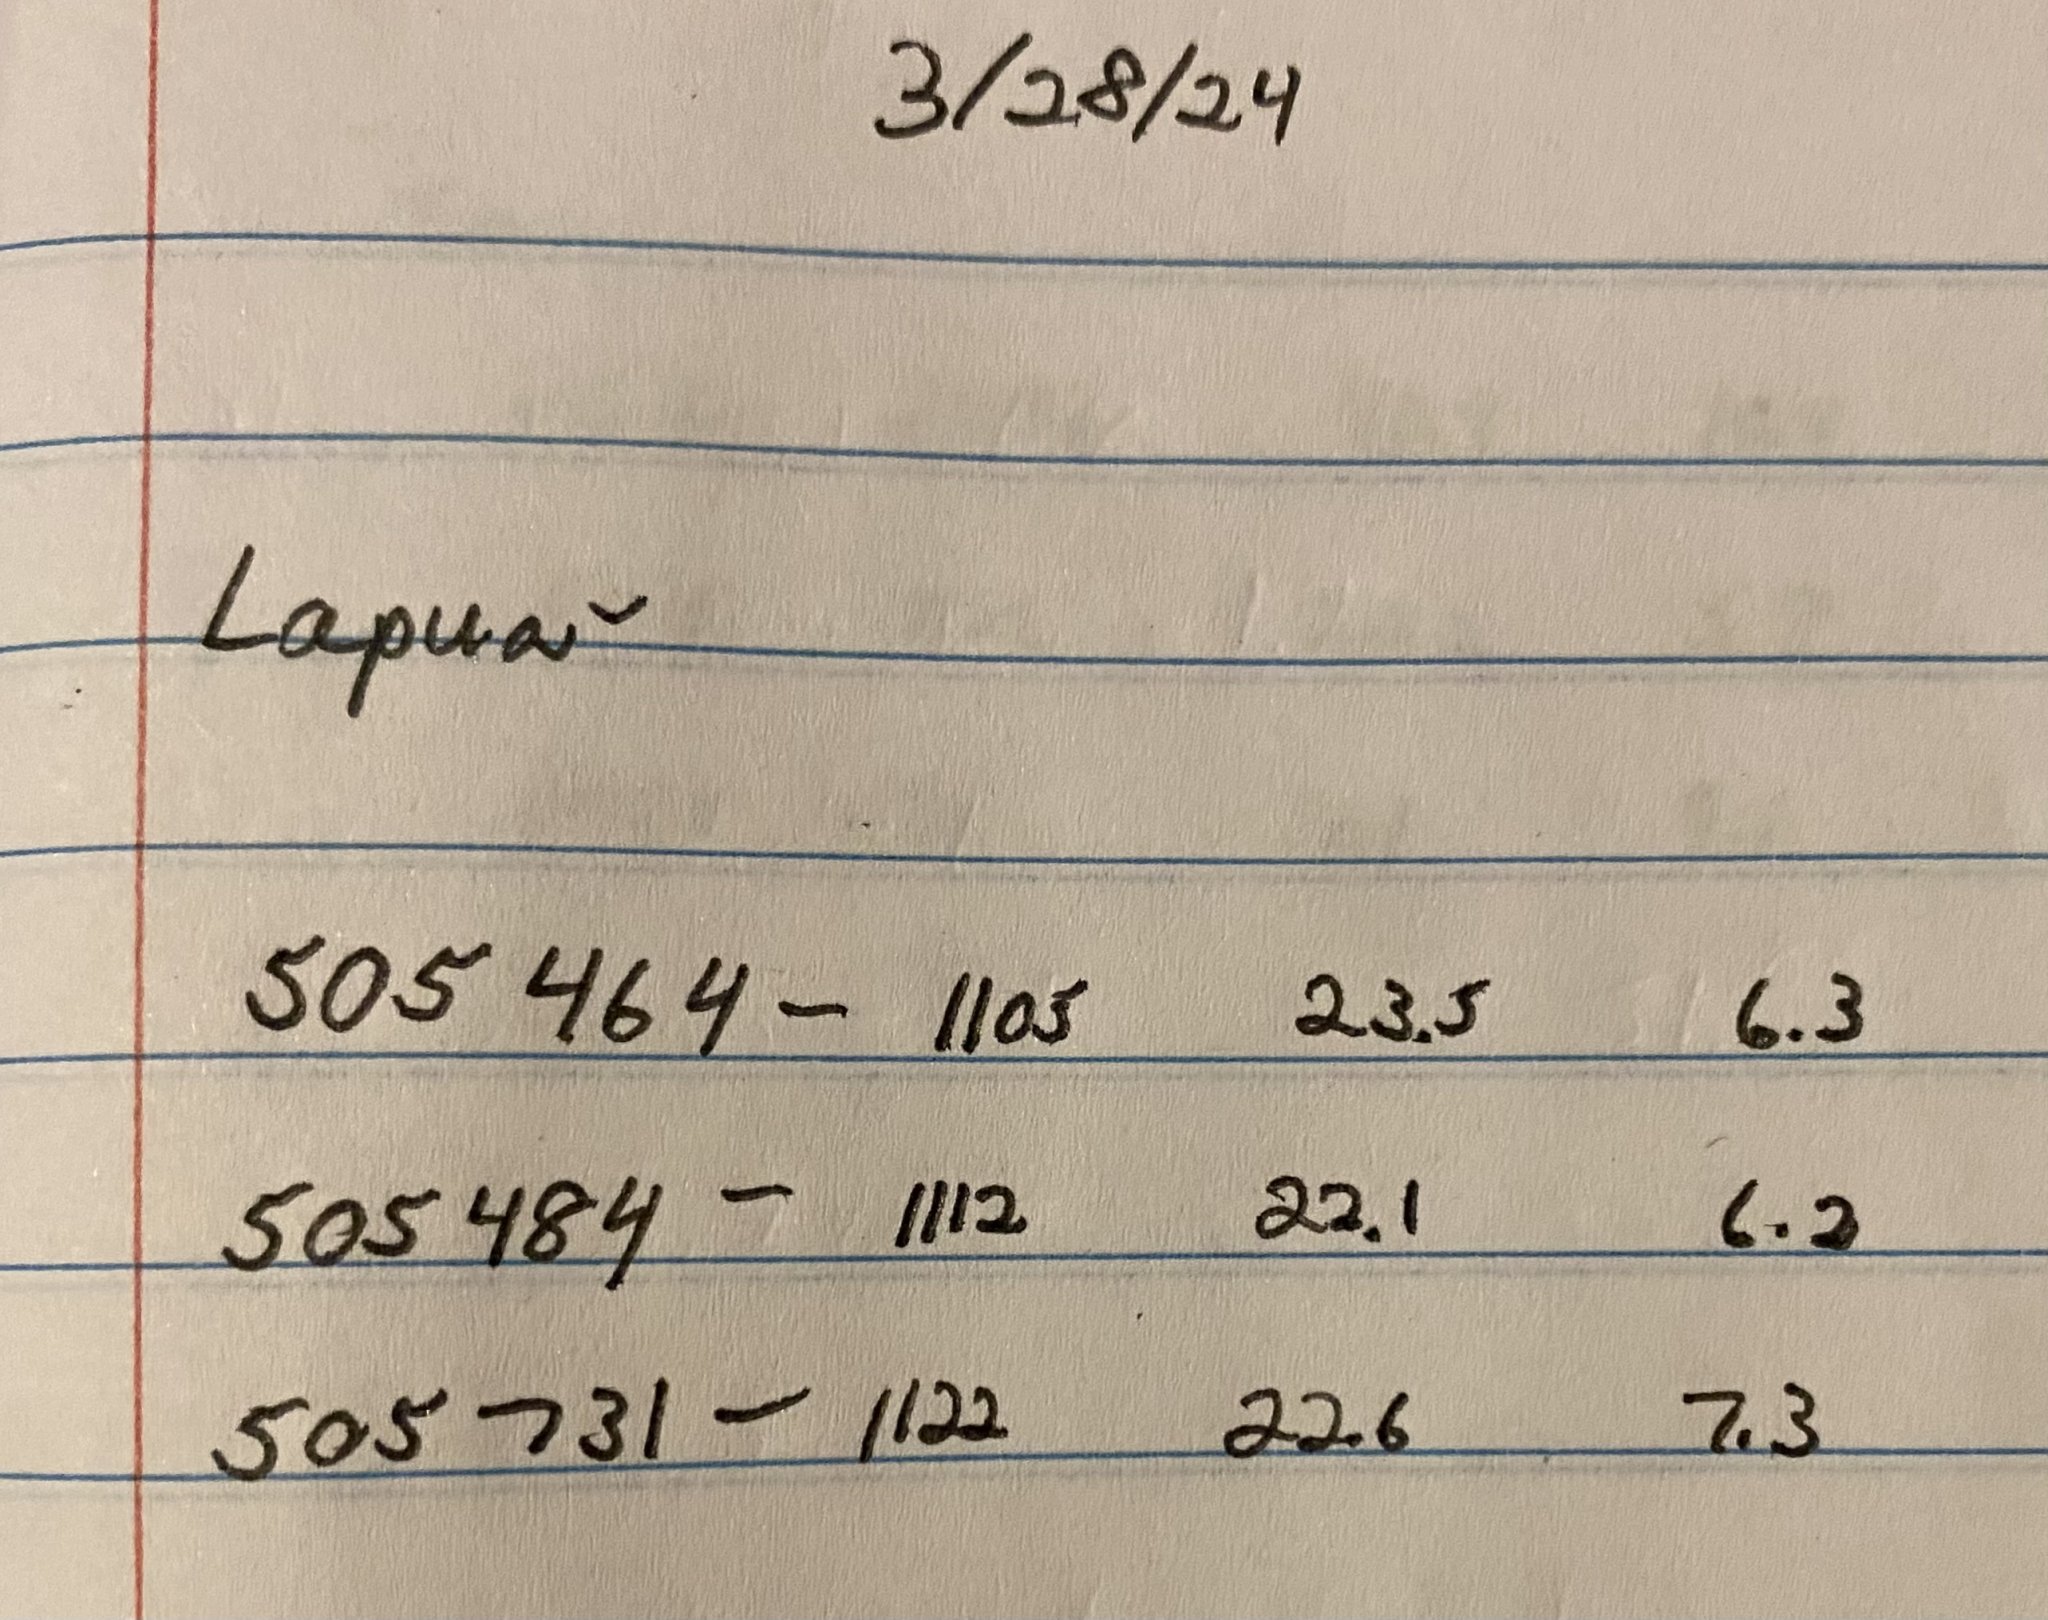 3/28/24
Lapua
505 464 - 1105 23.5 6.3
505 484 - 1112 22.1 6.2
505 731 - 1122 22.6 7.3